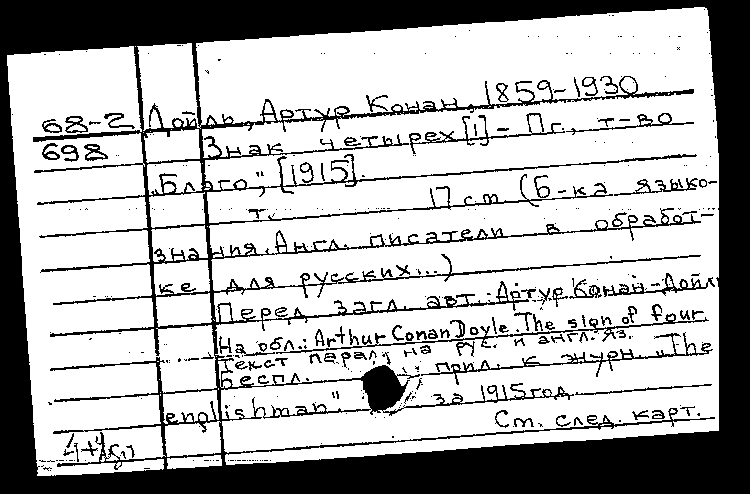 68-2 Дойль, Артур Конан, 1859-1930.
698 Знак четырех [1] - Пг., т-во
„Благо“, [1915].
т. 17 cm (Б-ка языко-
знания. Англ. писатели в обработ-
ке для русских...)
Перед загл. авт.: Артур Конан-Дойль
На обл.: Arthur Conan Doyle. The sign of four.
Текст парал. на рус. и англ. яз.
Беспл. прил. к журн. „The
englishman“. за 1915 год.
См. след. карт.